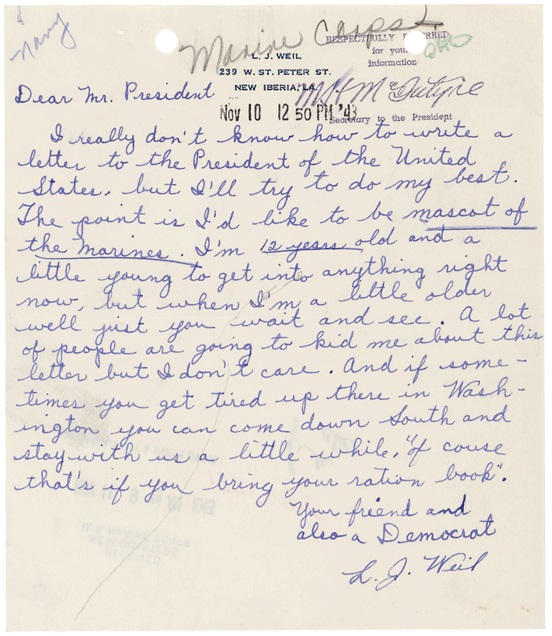 Navy
Marine Corps
RESPECTFULLY REFERRED
for your
information
L. J. WEIL
239 W. ST. PETER ST.
NEW IBERIA, LA.
M H McIntyre
Secretary to the President
Nov 10 12 50 PM '43
Dear Mr. President
I really don't know how to write a
letter to the President of the United
States, but I'll try to do my best.
The point is I'd like to be mascot of
the Marines. I'm 12 years old and a
little young to get into anything right
now, but when I'm a little older
well just you wait and see. A lot
of people are going to kid me about this
letter but I don't care. And if some-
times you get tired up there in Wash-
ington you can come down South and
stay with us a little while, "of couse
that's if you bring your ration book".
Your friend and
also a Democrat
L. J. Weil